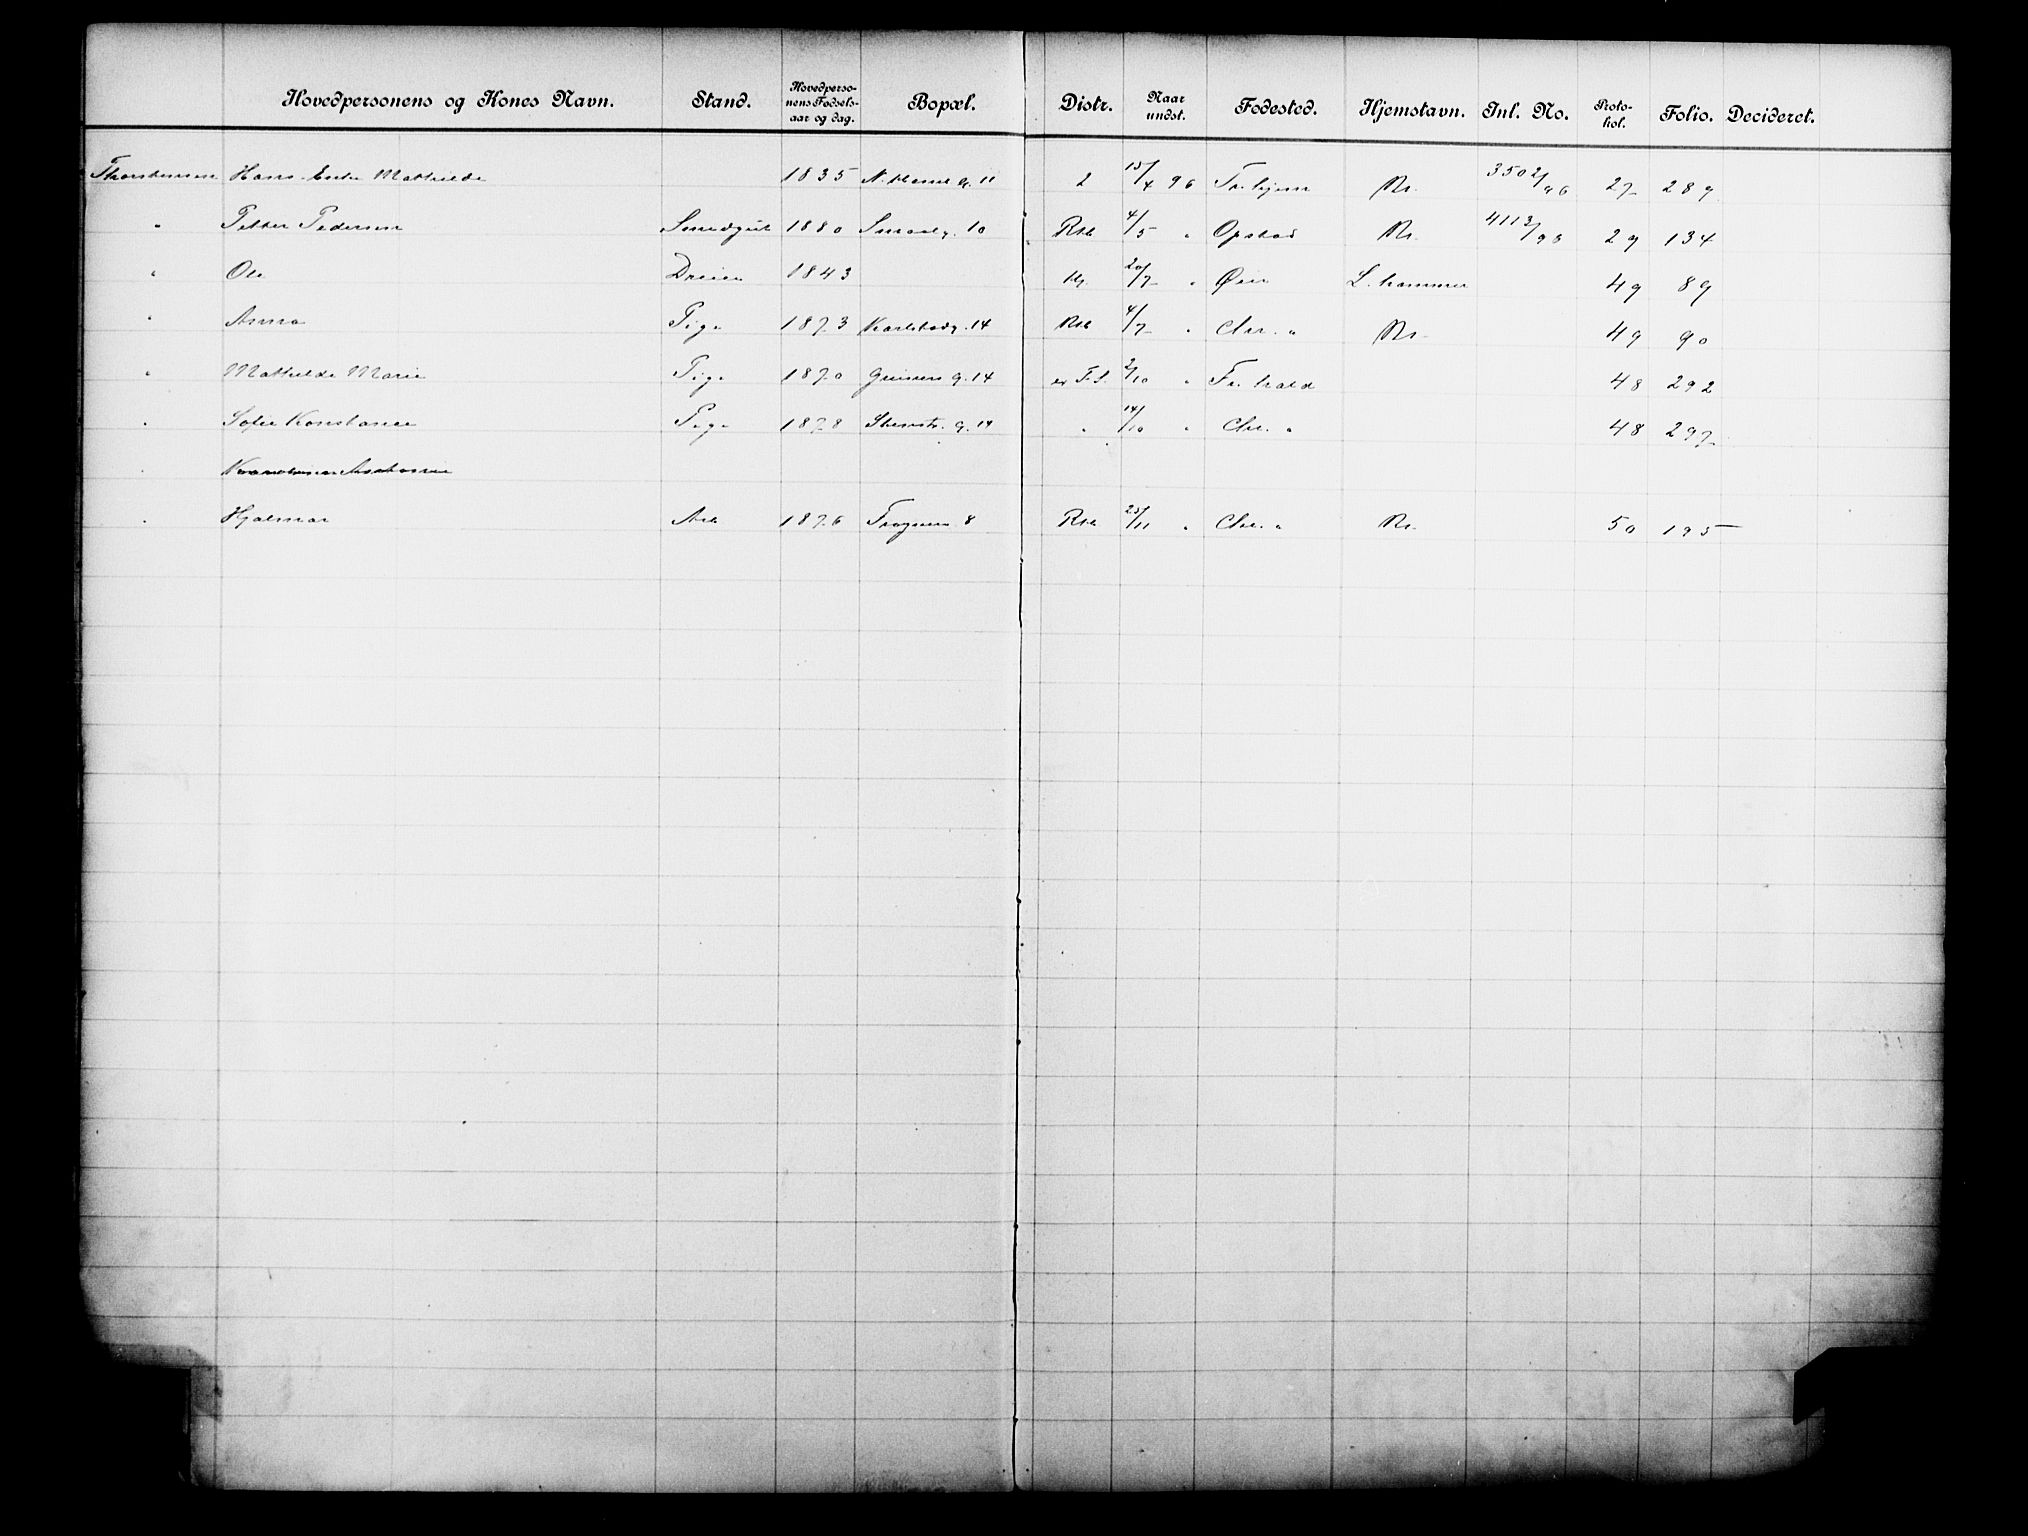 Hovedpersonens og Kones Navn. Stand. Hovedpersonens Fødselsaar og dag. Bopæl. Distr. Naar undst. Fødested. Hjemstavn. Inl. No. Protokol. Folio. Decideret.
Thorstensen Hans Enke Mathilde 1835 11 2 15/4 96 Tr.hjem Kr. 3502/96 27 289
" Petter Pedersen 1880 Smaalg. 10 Rst 4/5 " Opstad Kr. 4113/98 29 134
" Ole Dreier 1843 20/7 " Øier L.hammer 49 89
" Anna Pige 1873 Karlstadg. 14 Rst 4/7 " Chr. a Kr. 49 90
" Mathilde Marie Pige 1870 g. 14 2/10 " Fr. hald 48 292
" Sofie Konstance Pige 1878 Stenstr. g. 14 " 14/10 " Chr. a 48 297
"
" Hjalmar Arb 1876 Frognerv. 8 Rst 25/11 " Chr. a Kr. 50 195